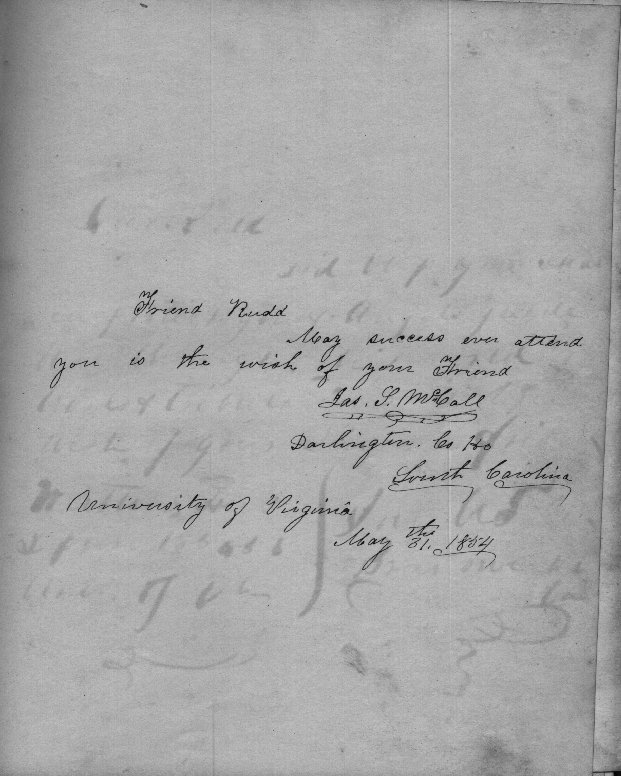 Friend Rudd
May success ever attend
you is the wish of your Friend
Jas. S. McCall
Darlington. Co Ho
South Carolina
University of Virginia
May the 31. 1854